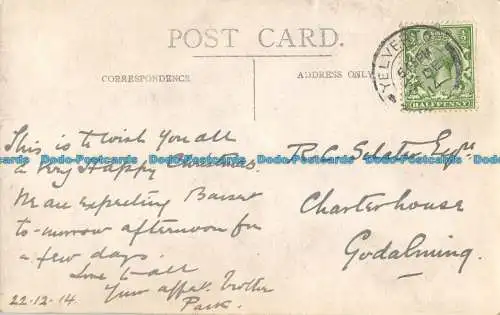 POST CARD.
CORRESPONDENCE
ADDRESS ONLY
YELVERT
HALFPENNY
This is to wish you all
a very Happy Christmas.
We are expecting
to-morrow afternoon for
a few days.
Love to all
Your affect.
22-12-14
R. C. Slater Esqre
Charterhouse
Godalming.
Dodo-Postcards Dodo-Postcards Dodo-Postcards Dodo-Postcards Dodo-Postcards Dodo-Postcards